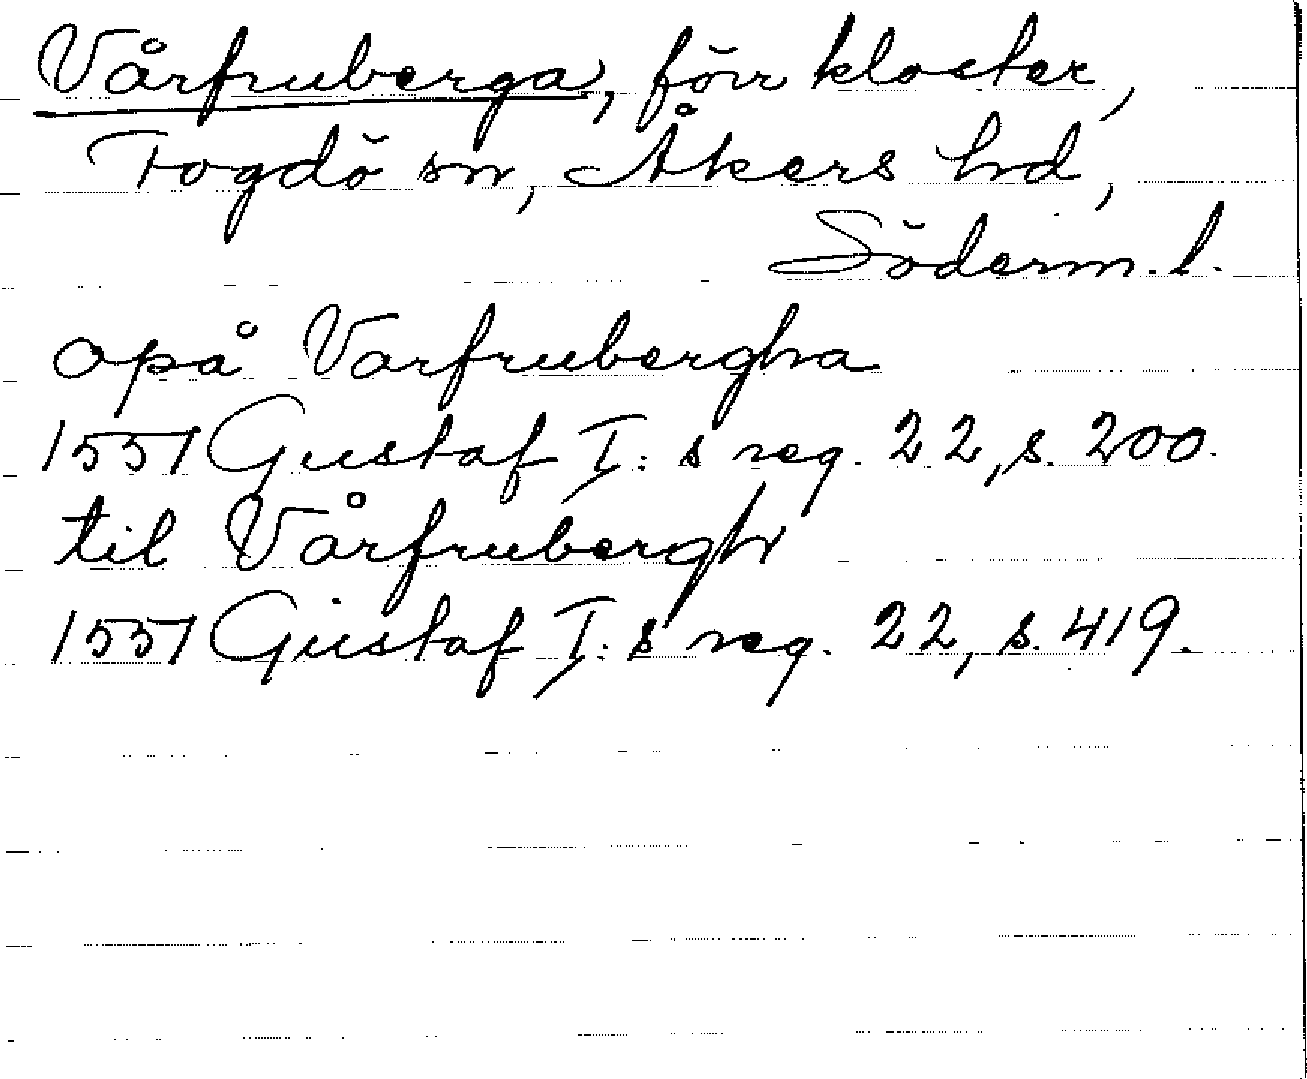 Vårfruberga, förr kloster,
Fogdö sn, Åkers hd,
Söderm. l.
opå Varfrubergha
1551 Gustaf I: s reg. 22, s. 200.
til Vårfrubergh
1551 Gustaf I: s reg. 22, s. 419.